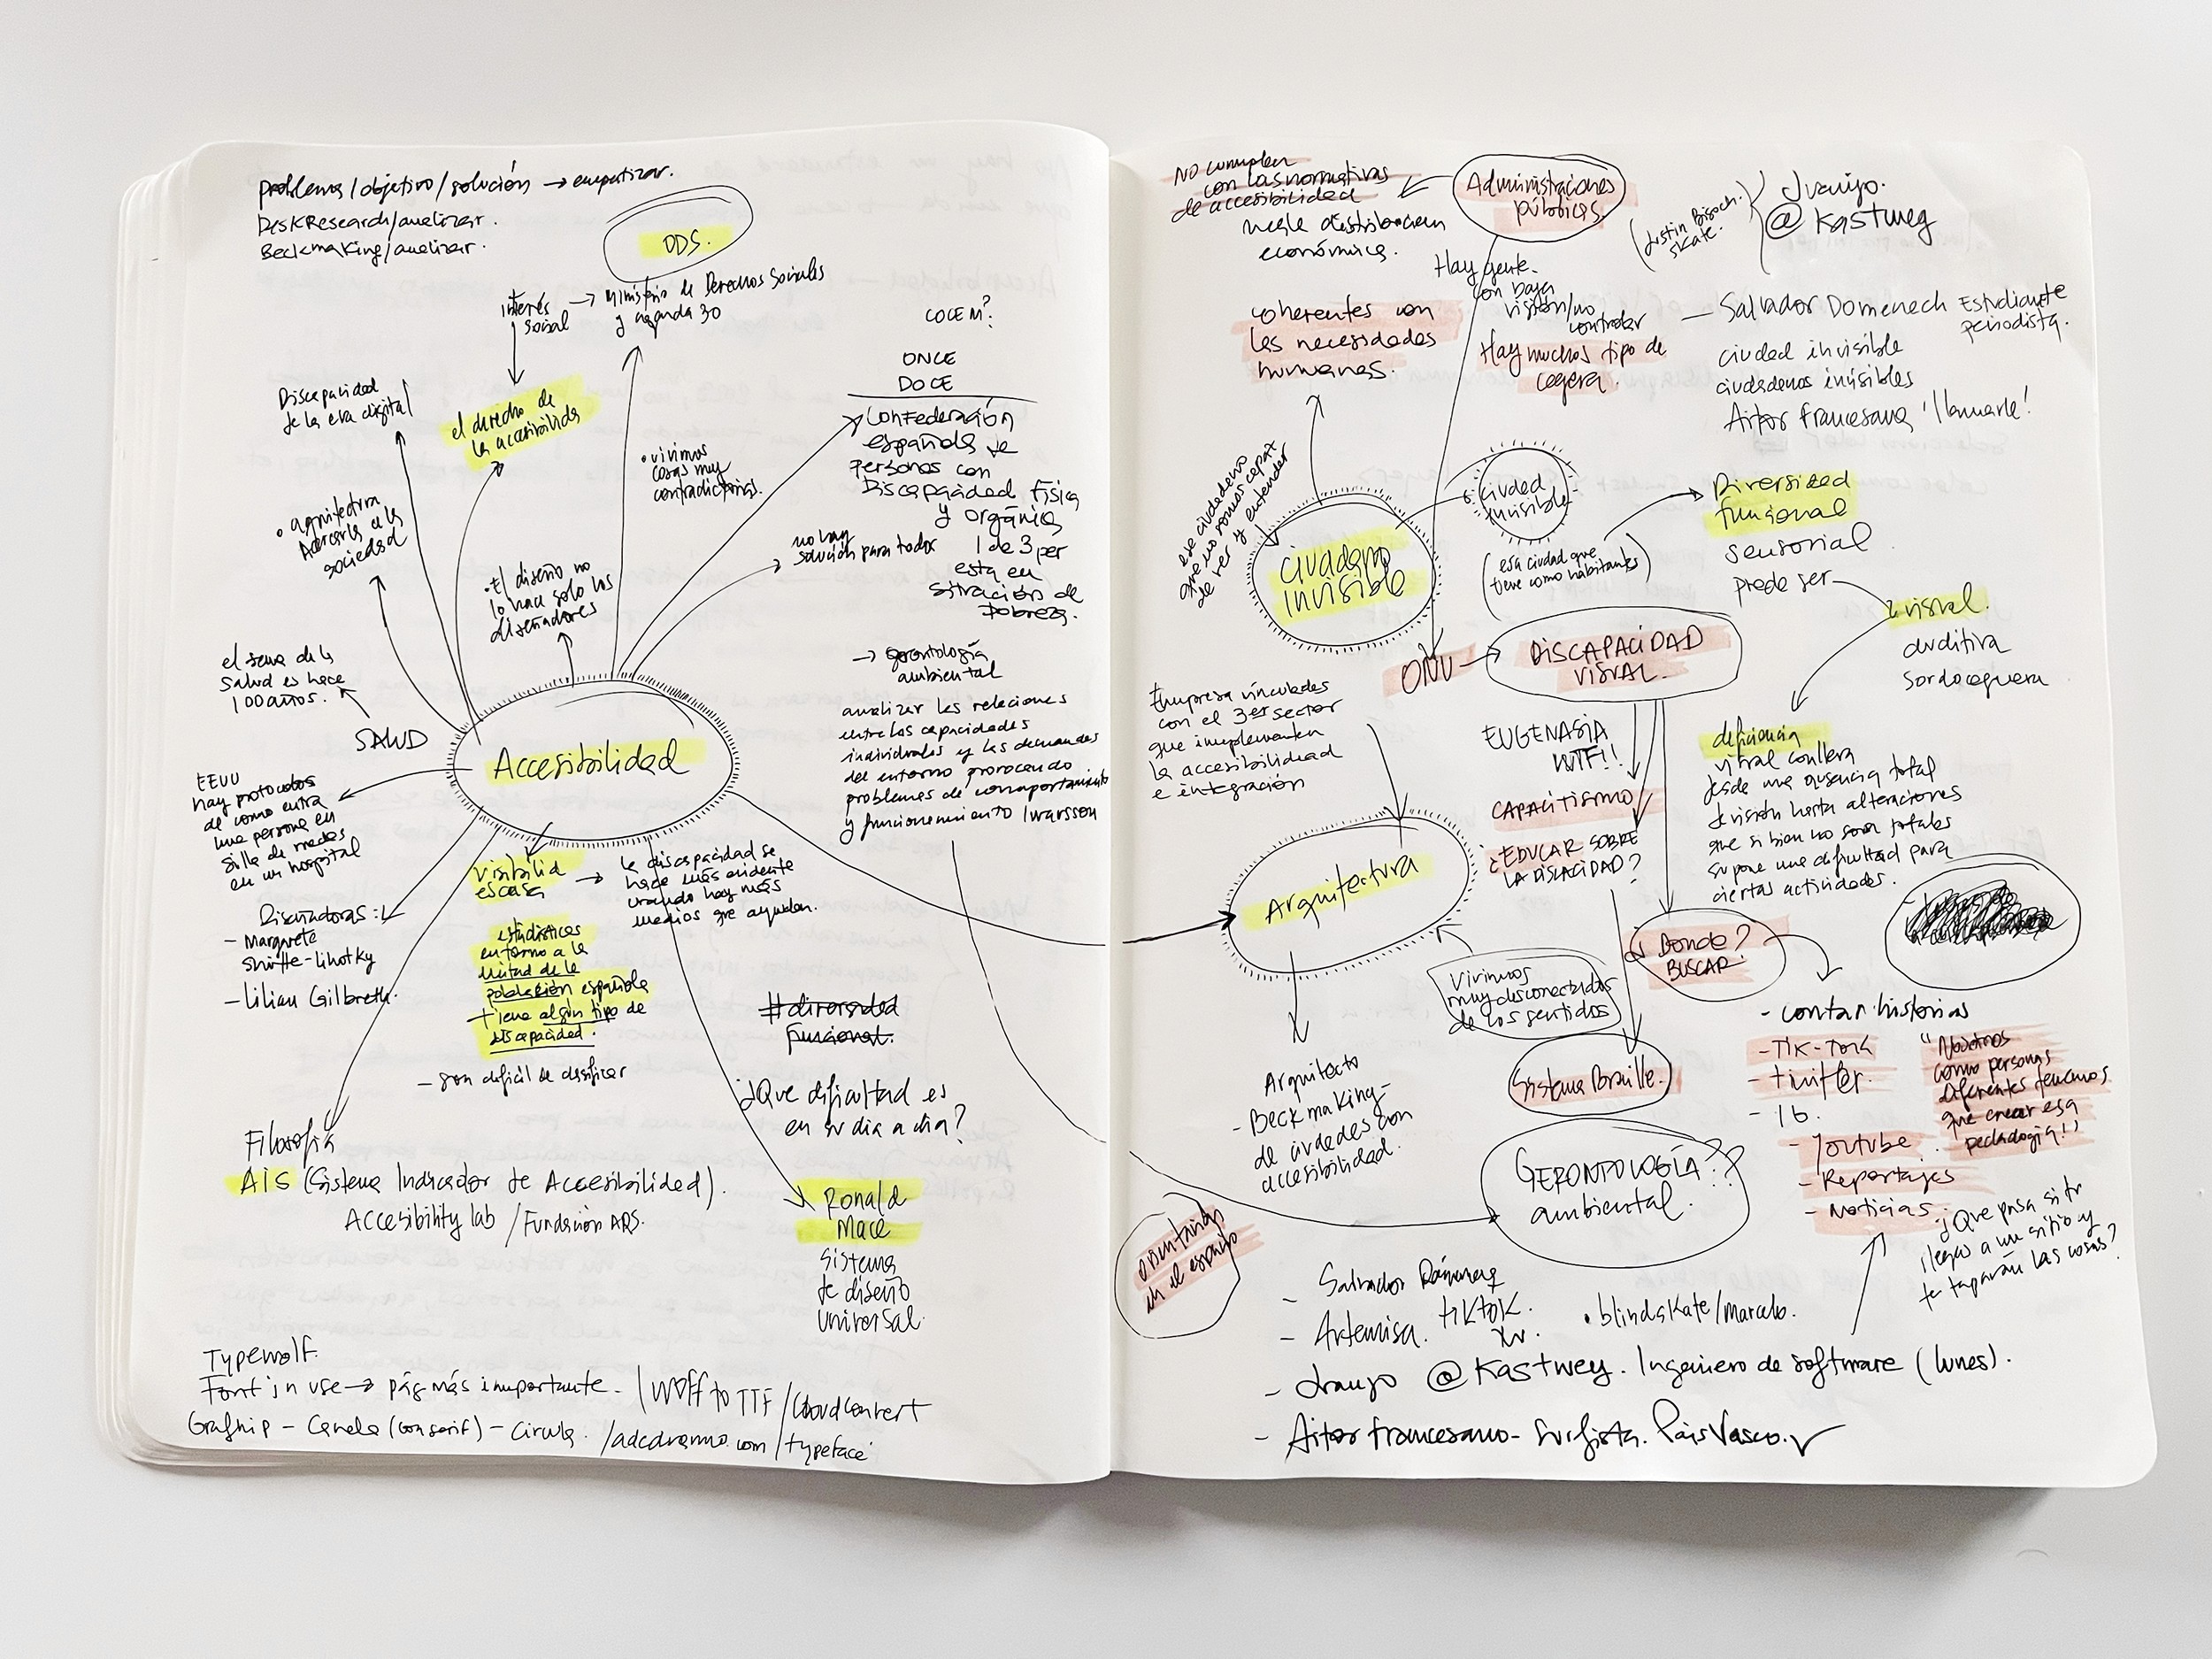 problema/objetivo/solución → empatizar.
DeskResearch/analizar.
Beckmaking/analizar.
ODS.
interés
social
→ Ministerio de Derechos Sociales
y agenda 30
el derecho de
la accesibilida
Discapacidad
de la era digital
• arquitectura
Acercarla a la
sociedad
• El diseño no
lo hace solo los
diseñadores
• vivimos
cosas muy
contradictorias.
COCEM?
ONCE
DOCE
Confederación
española de
personas con
Discapacidad Física
y orgánica
1 de 3 per
esta en
situación de
pobreza.
no hay
solución para todos
→ gerontología
ambiental
analizar las relaciones
entre las capacidades
individuales y las demandas
del entorno provocando
problemas de comportamiento
y funcionamiento Iwarsson
el tema de la
salud es hace
100 años.
SALUD
Accesibilidad
EEUU
hay protocolos
de como entra
una persona en
silla de ruedas
en un hospital
Diseñadoras:
- Margarete
Shütte-Lihotky
- Lilian Gilbreth.
Visibilid
escasa
→ la discapacidad se
hace más evidente
cuando hay más
medios que ayudan.
estadísticas
entorno a la
mitad de la
población española
tiene algún tipo de
discapacidad.
- son difícil de clasificar
#diversidad
funcional.
¿Que dificultad es
en su dia a dia?
Filosofía
AIS (Sistema Indicador de Accesibilidad).
Accesibility lab / Fundación ARS.
Ronald
Mace
sistema
de diseño
universal.
Typewolf.
Font in use → pág más importante. / woff to TTF / Cloudconvert
Grafhip - Canela (con serif) - Circula. /
.com / typeface
No cumplen
con las normativas
de accesibilidad
Administraciones
públicas.
mala distribución
económica.
Araujo.
@Kastweg
skate.
Hay gente
con baja
visión/no
controlar
Hay muchos tipo de
cegera.
coherentes con
las necesidades
humanas.
— Salvador Domenech Estudiante
periodista.
ciudad invisible
ciudadanos invisibles
Aitor Francesena 'llamarle'.
ese ciudadano
que no somos capaz
de ver y entender
ciudadano
invisible
ciudad
invisible
(esa ciudad que
tiene como habitantes)
Diversidad
funcional
sensorial
puede ser
visual.
auditiva
sordoceguera
ONU → DISCAPACIDAD
VISUAL.
Empresa vinculadas
con el 3er sector
que implementen
la accesibilidad
e integración
EUGENASIA
WTF!!
CAPACITISMO
¿EDUCAR SOBRE
LA DISCACIDAD?
deficiencia
visual conlleva
desde una ausencia total
de visión hasta alteraciones
que si bien no son totales
supone una dificultad para
ciertas actividades.
Arquitectura
¿Donde?
BUSCAR
Vivimos
muy desconectados
de los sentidos
- contar historias
- Tik-Tok
- twitter.
- IG.
- Youtube
- Reportajes
- Noticias
"Nosotros
como personas
diferentes tenemos
que crear esa
pedadogia!"
Sistema Braille.
Arquitecto
- Beckmaking -
de ciudades con
accesibilidad.
GERONTOLOGÍA??
ambiental.
orientarian
en el espacio
¿Que pasa si tu
llegas a un sitio y
te taparán las cosas?
- Salvador
- Artemisa. tiktok.
• blindskate/marcelo.
- Araujo @Kastwey. Ingeniero de software (lunes).
- Aitor francesano - Surfista. Pais Vasco. ✓